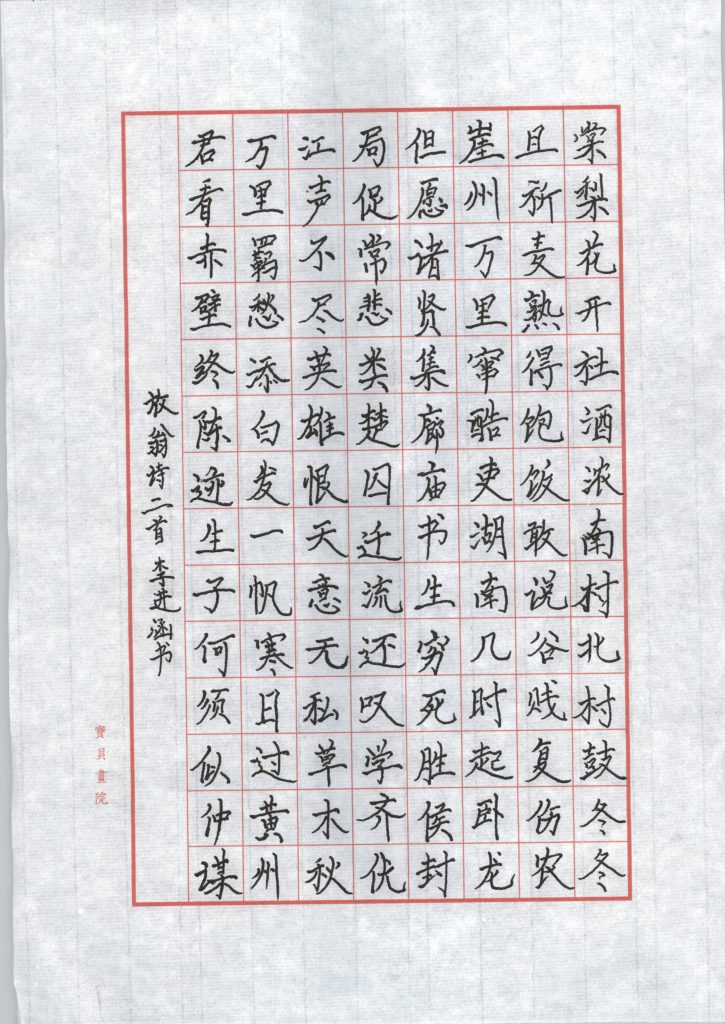 棠梨花开社酒浓南村北村鼓冬冬
且祈麦熟得饱饭敢说谷贱复伤农
崖州万里窜酷吏湖南几时起卧龙
但愿诸贤集廊庙书生穷死胜侯封
局促常悲类楚囚迁流还叹学齐优
江声不尽英雄恨天意无私草木秋
万里羁愁添白发一帆寒日过黄州
君看赤壁终陈迹生子何须似仲谋
放翁诗二首 李进涵书
寶貝畫院